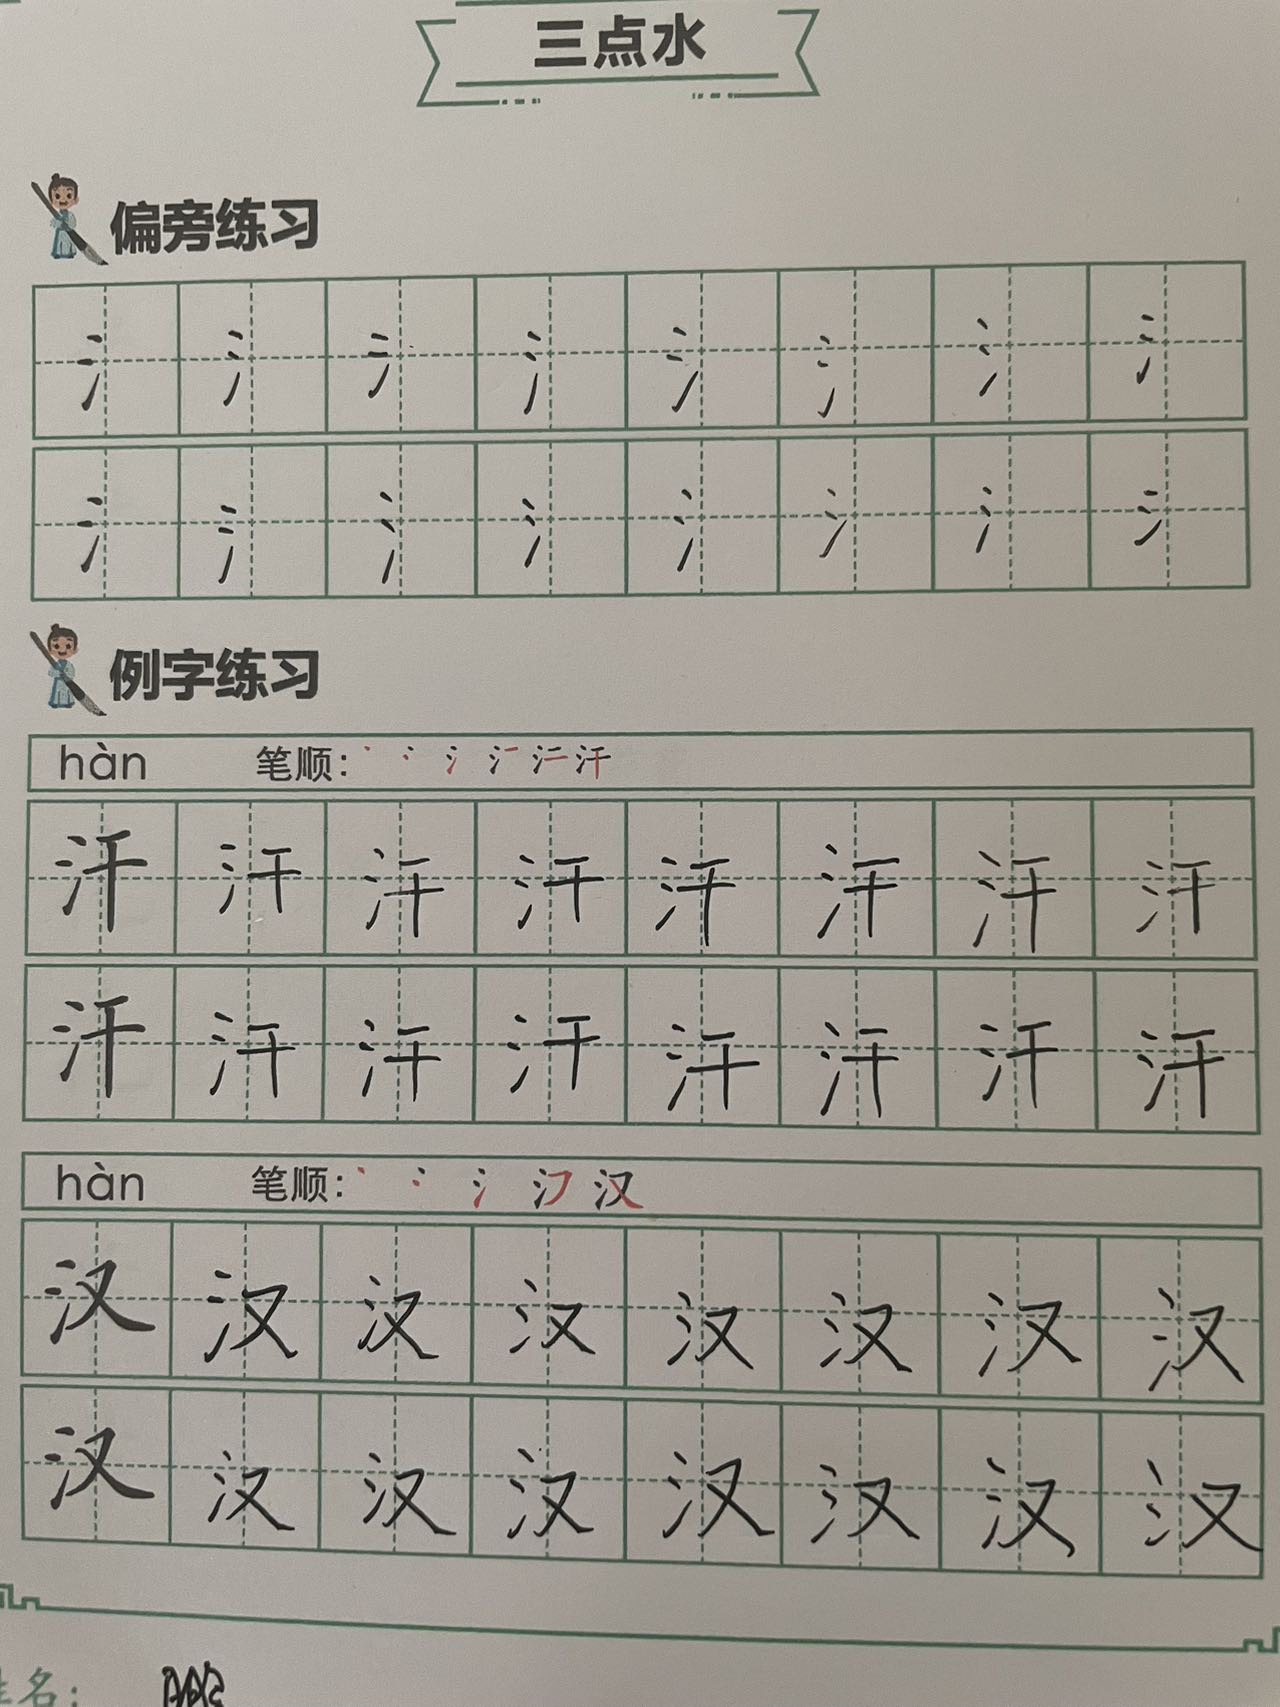 三点水
偏旁练习
氵 氵 氵 氵 氵 氵 氵 氵
氵 氵 氵 氵 氵 氵 氵 氵
例字练习
hàn 笔顺：
汗 汗 汗 汗 汗 汗 汗 汗
汗 汗 汗 汗 汗 汗 汗 汗
hàn 笔顺：
汉 汉 汉 汉 汉 汉 汉 汉
汉 汉 汉 汉 汉 汉 汉 汉
姓名：